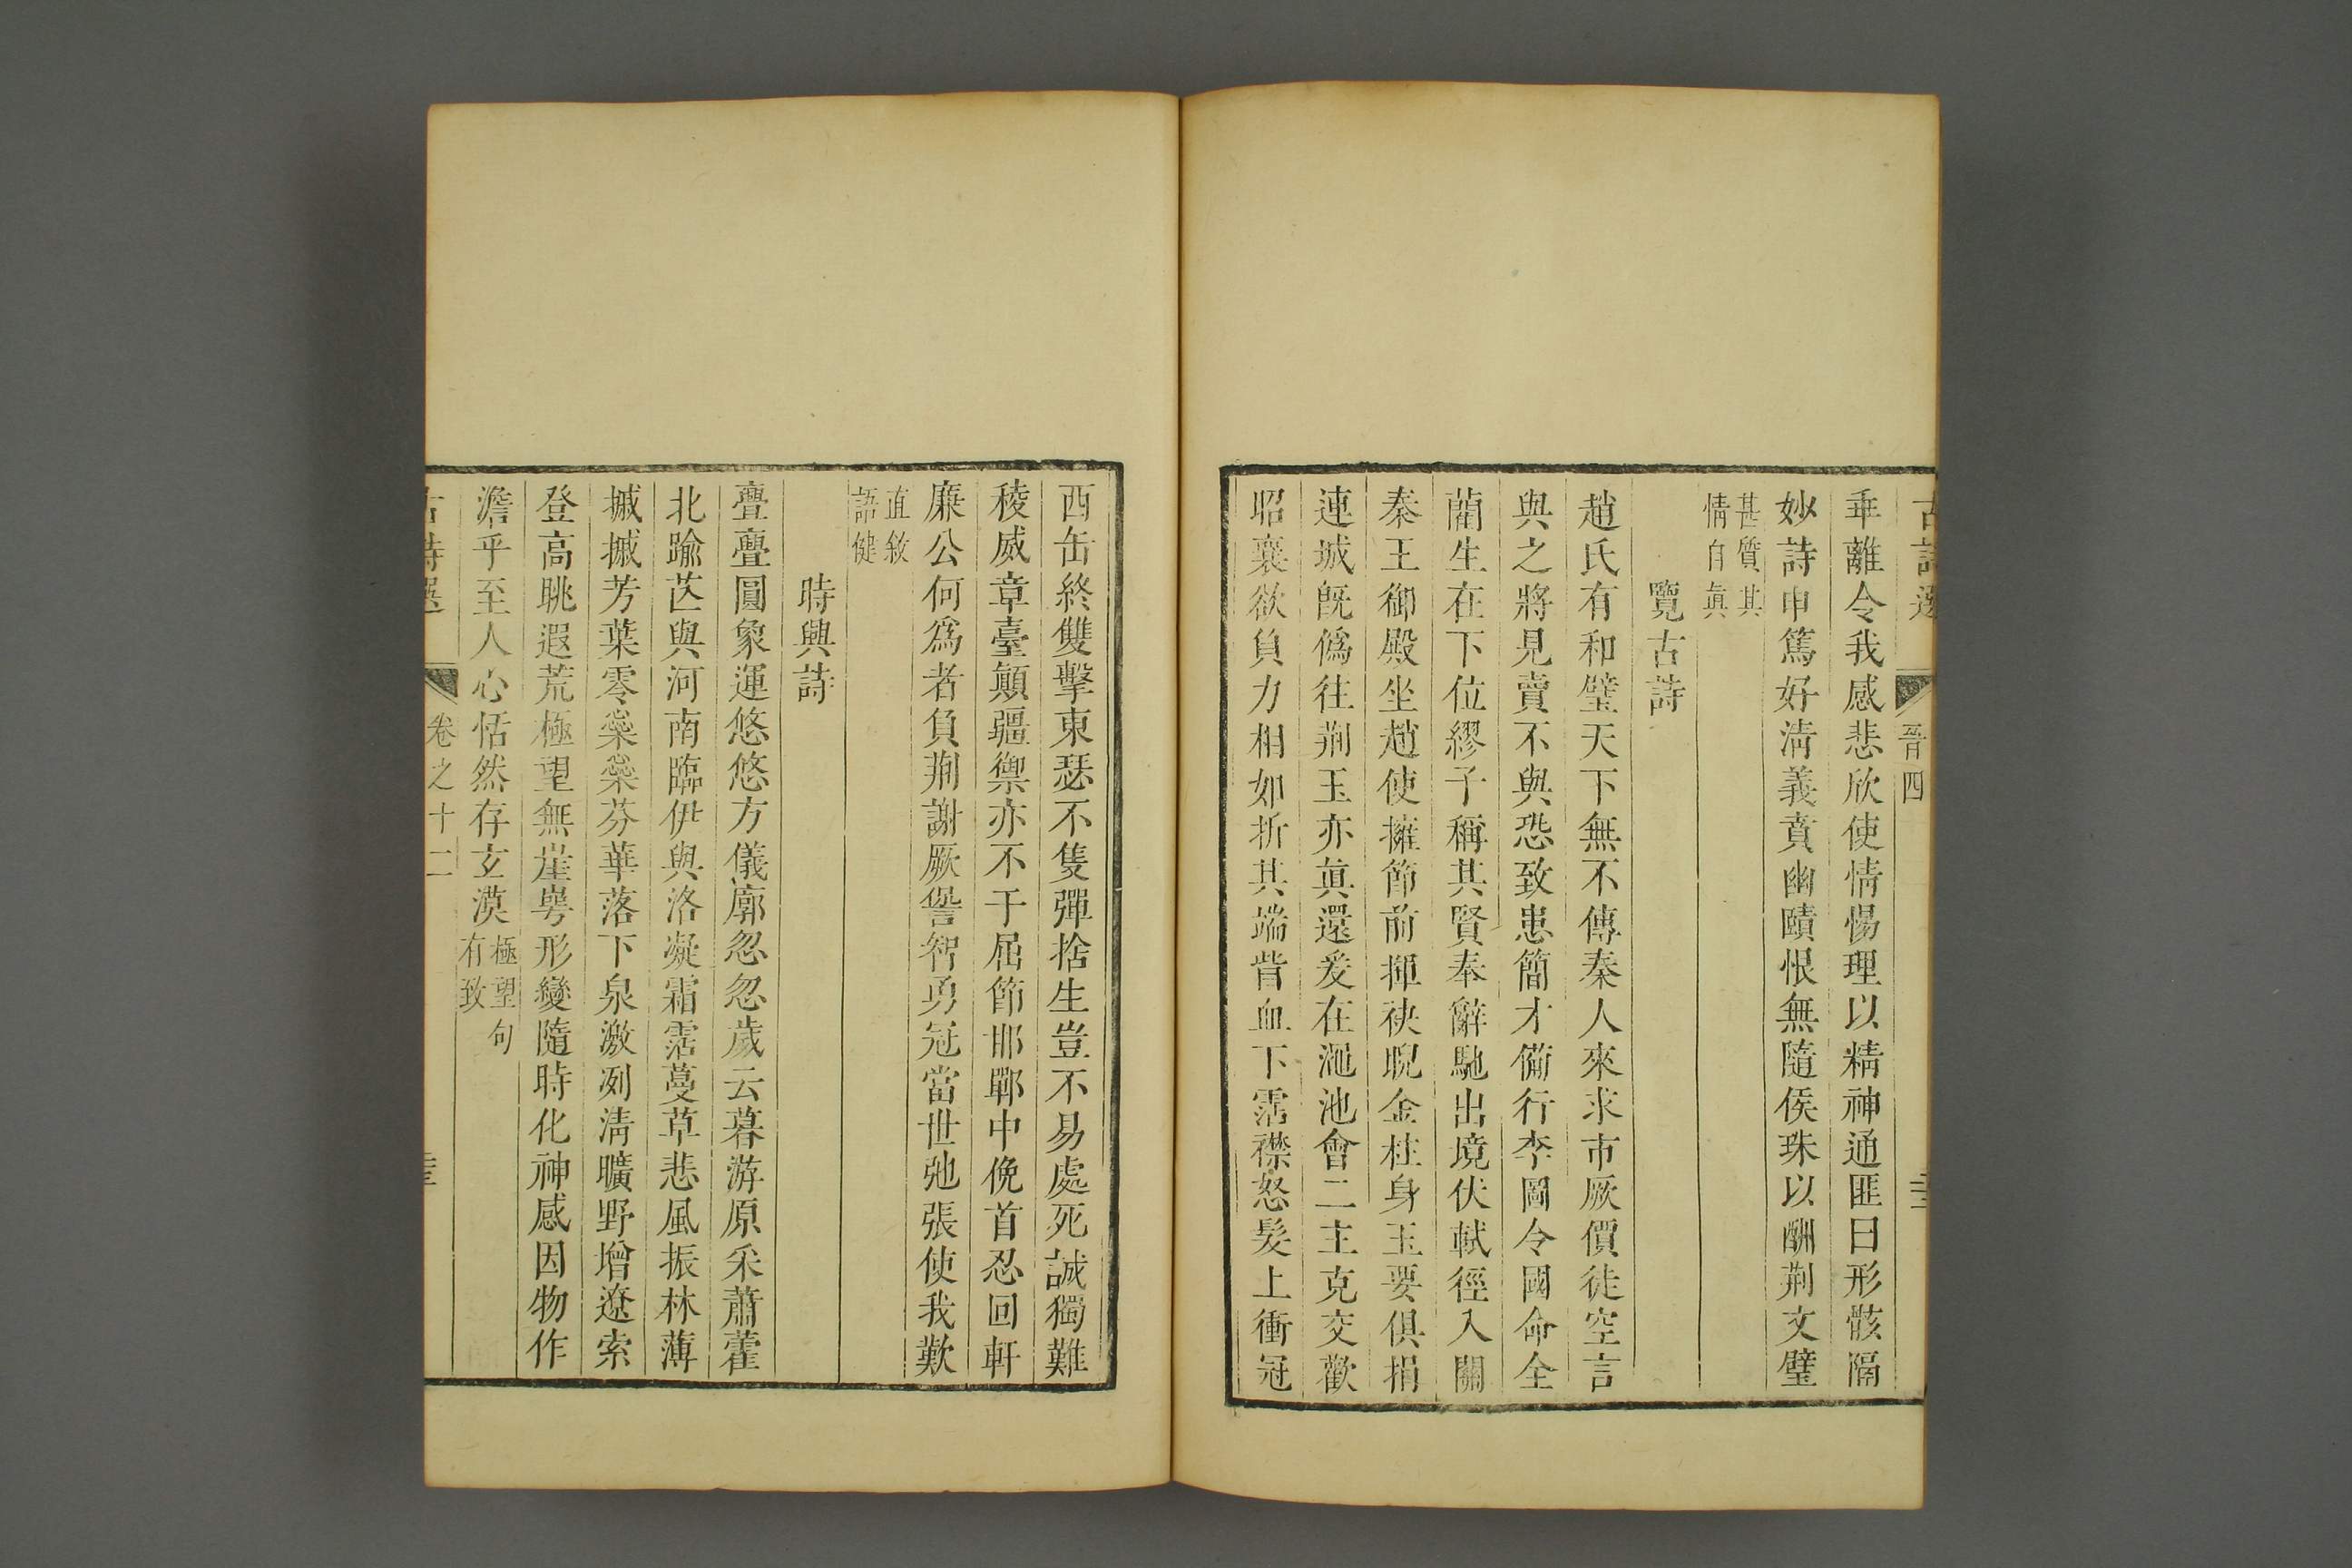 古詩選 晉四
乖離令我感悲欣使情惕理以精神通匪曰形骸隔
妙詩申篤好清義貫幽賾恨無隨侯珠以酬荆文璧
甚質其
情自眞
覽古詩
趙氏有和璧天下無不傳秦人來求市厥價徒空言
與之將見賣不與恐致患簡才備行李圖令國命全
藺生在下位繆子稱其賢奉辭馳出境伏軾徑入關
秦王御殿坐趙使擁節前揮袂睨金柱身玉要俱捐
連城旣僞往荆玉亦眞還爰在澠池會二主克交歡
昭襄欲負力相如折其端眥血下霑襟怒髮上衝冠
西缶終雙擊東瑟不隻彈捨生豈不易處死誠獨難
稜威章臺顛疆禦亦不干屈節邯鄲中俛首忍回軒
廉公何爲者負荆謝厥諐智勇冠當世弛張使我歎
直敘
語健
時興詩
亹亹圓象運悠悠方儀廓忽忽歲云暮游原采蕭藿
北踰芒與河南臨伊與洛凝霜霑蔓草悲風振林薄
摵摵芳葉零橤橤芬華落下泉激冽清曠野增遼索
登高眺遐荒極望無崖崿形變隨時化神感因物作
澹乎至人心恬然存玄漠
極望句
有致
古詩選 卷之十二